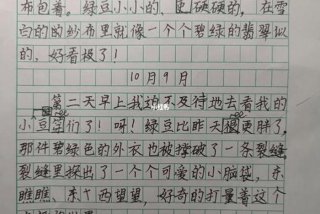 布包着。绿豆小小的、硬硬的，在雪
白的的纱布里就像一个个碧绿的翡翠似
的，好看极了！
10月9月
第二天早上我迫不及待地去看我的
小豆宝们了！呀！绿豆比昨天更胖了，
那件碧绿色的外衣也被撑破了一条裂缝，
裂缝里探出了一个个可爱的小脑袋，东
瞧瞧、东西望望，好奇的打量着这个
小红书